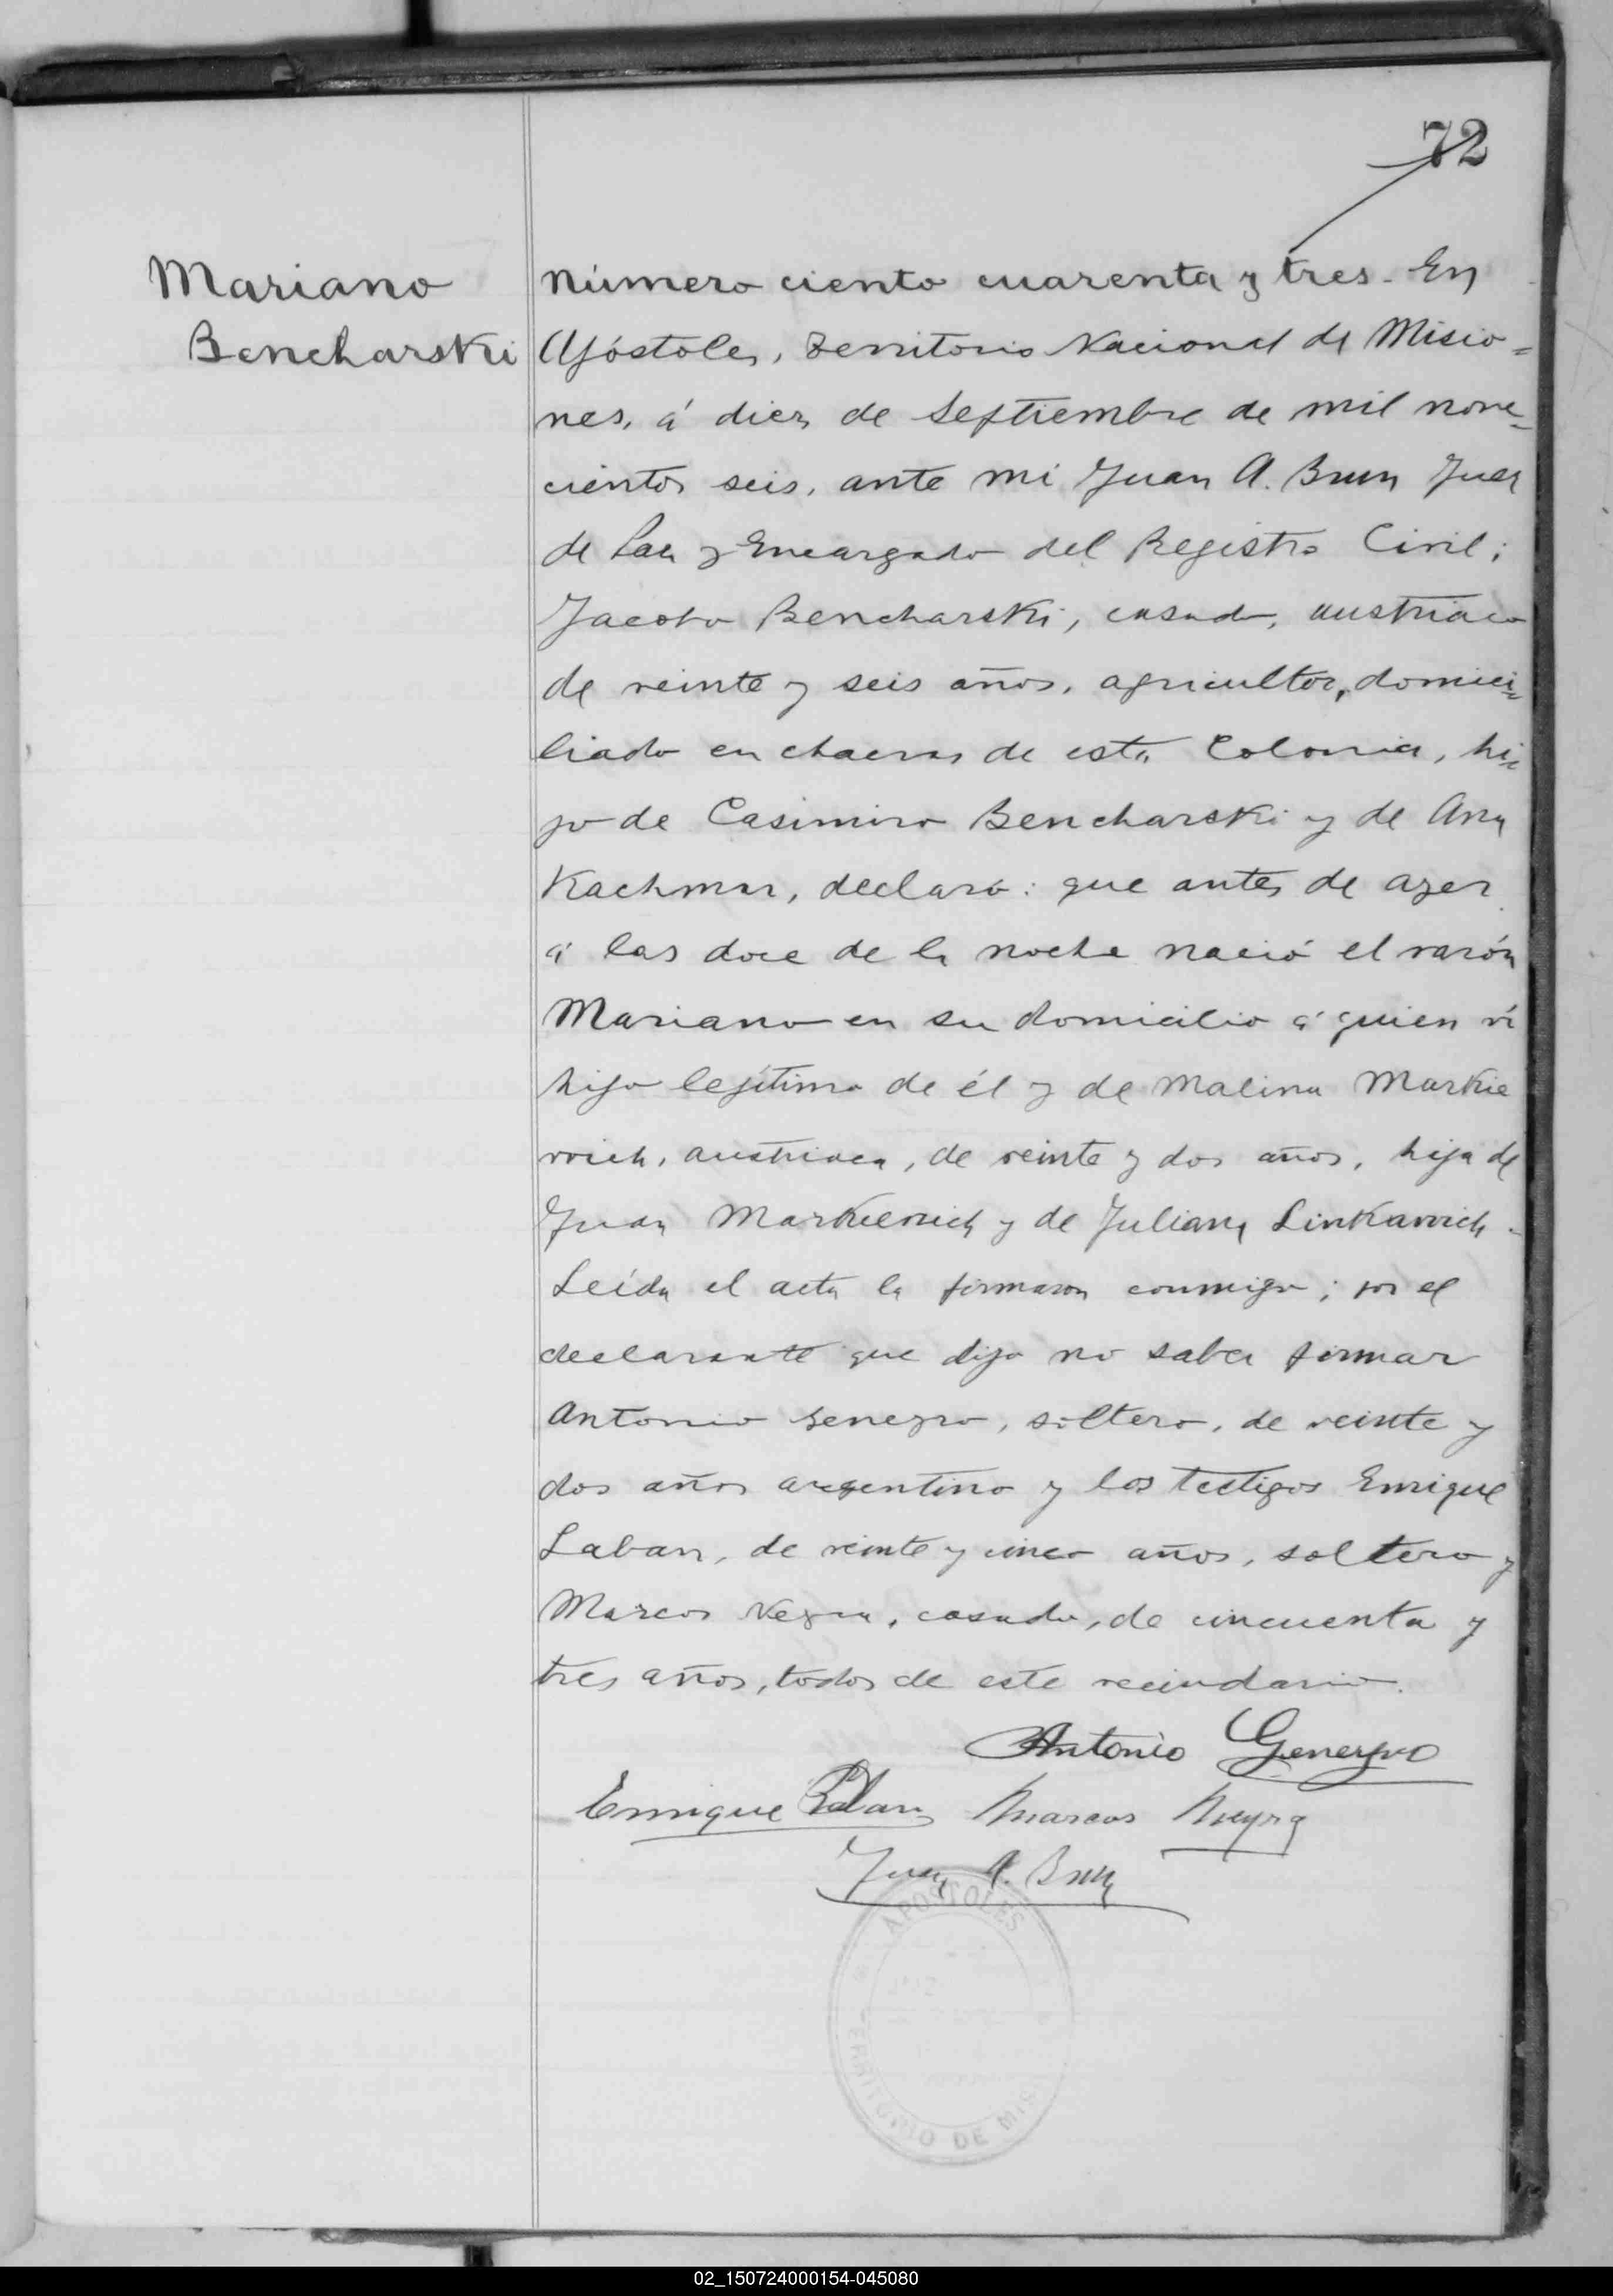 72
Mariano
Bencharski
Número ciento cuarenta y tres. En
Apóstoles, Territorio Nacional de Misio=
nes, á diez de Septiembre de mil nove=
cientos seis, ante mi Juan A. Brun Juez
de Paz y Encargado del Registro Civil;
Jacobo Bencharski, casado, austriaco
de veinte y seis años, agricultor, domici=
liado en chacras de esta Colonia, hi=
jo de Casimiro Bencharski y de Ana
Kachmar, declaró: que antes de ayer
á las doce de la noche nació el varón
Mariano en su domicilio á quien ví
hijo legítimo de él y de Malina Markie
vvich, austriaca, de veinte y dos años, hija de
Juan Markievich y de Juliana Linkavvich.
Leída el acta la firmaron conmigo; por el
declarante que dijo no saber firmar
Antonio Genegro, soltero, de veinte y
dos años argentino y los testigos Enrique
Laban, de veinte y cinco años, soltero y
Marcos Negra, casado, de cincuenta y
tres años, todos de este vecindario.
Antonio
Enrique Marcos
Juan A. Brun
APOSTOLES
TERRITORIO DE MIS
02_150724000154-045080